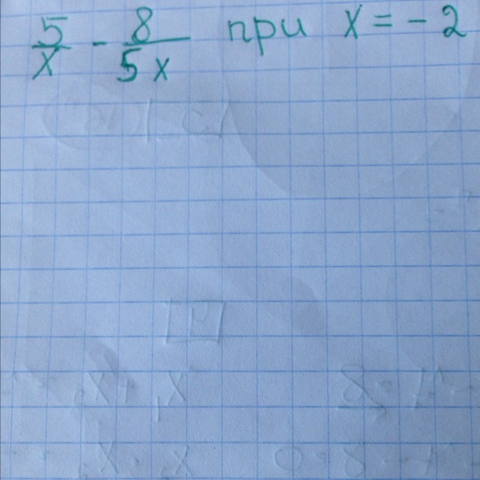 5/x - 8/5x при x = - 2